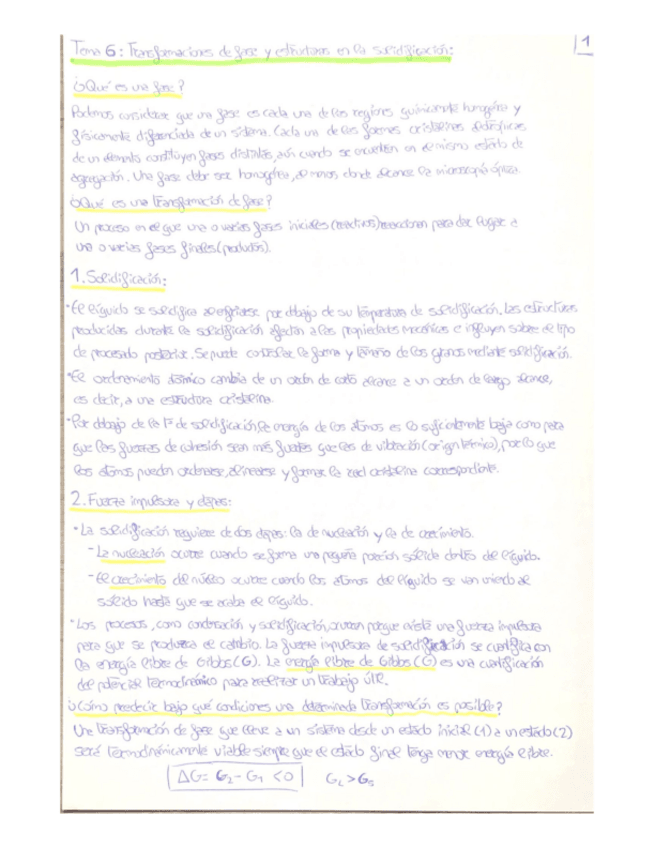 Tema 6: Transformaciones de fase y estructuras en la solidificación:
1
¿Qué es una fase?
Podemos considerar que una fase es cada una de las regiones químicamente homogénea y
físicamente diferenciada de un sistema. Cada una de las formas cristalinas alotrópicas
de un elemento constituyen fases distintas, aún cuando se encuentren en el mismo estado de
agregación. Una fase debe ser homogénea, al menos donde alcance la microscopía óptica.
¿Qué es una transformación de fase?
Un proceso en el que una o varias fases iniciales (reactivos) reaccionan para dar lugar a
una o varias fases finales (productos).
1. Solidificación:
• El líquido se solidifica al enfriarse por debajo de su temperatura de solidificación. Las estructuras
producidas durante la solidificación afectan a las propiedades mecánicas e influyen sobre el tipo
de procesado posterior. Se puede controlar la forma y tamaño de los granos mediante solidificación.
• El ordenamiento atómico cambia de un orden de corto alcance a un orden de largo alcance,
es decir, a una estructura cristalina.
• Por debajo de la Tª de solidificación, la energía de los átomos es lo suficientemente baja como para
que las fuerzas de cohesión sean más fuertes que las de vibración (origen térmico), por lo que
los átomos pueden ordenarse, alinearse y formar la red cristalina correspondiente.
2. Fuerza impulsora y etapas:
• La solidificación requiere de dos etapas: la de nucleación y la de crecimiento.
- La nucleación ocurre cuando se forma una pequeña porción sólida dentro del líquido.
- El crecimiento del núcleo ocurre cuando los átomos del líquido se van uniendo al
sólido hasta que se acaba el líquido.
• Los procesos, como condensación y solidificación, ocurren porque existe una fuerza impulsora
para que se produzca el cambio. La fuerza impulsora de solidificación se cuantifica con
la energía libre de Gibbs (G). La energía libre de Gibbs (G) es una cuantificación
del potencial termodinámico para realizar un trabajo útil.
¿Cómo predecir bajo qué condiciones una determinada transformación es posible?
Una transformación de fase que lleve a un sistema desde un estado inicial (1) a un estado (2)
será termodinámicamente viable siempre que el estado final tenga menor energía libre.
ΔG = G₂ - G₁ < 0 G_L > G_S